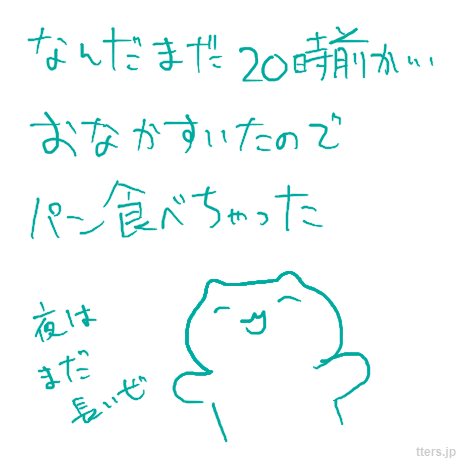 なんだまだ20時前かい
おなかすいたので
パン食べちゃった
夜は
まだ
長いぜ
tters.jp